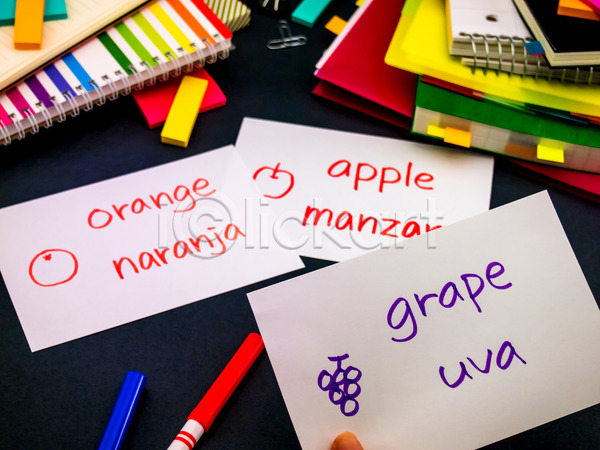 orange
naranja
apple
grape
uva
iclickart